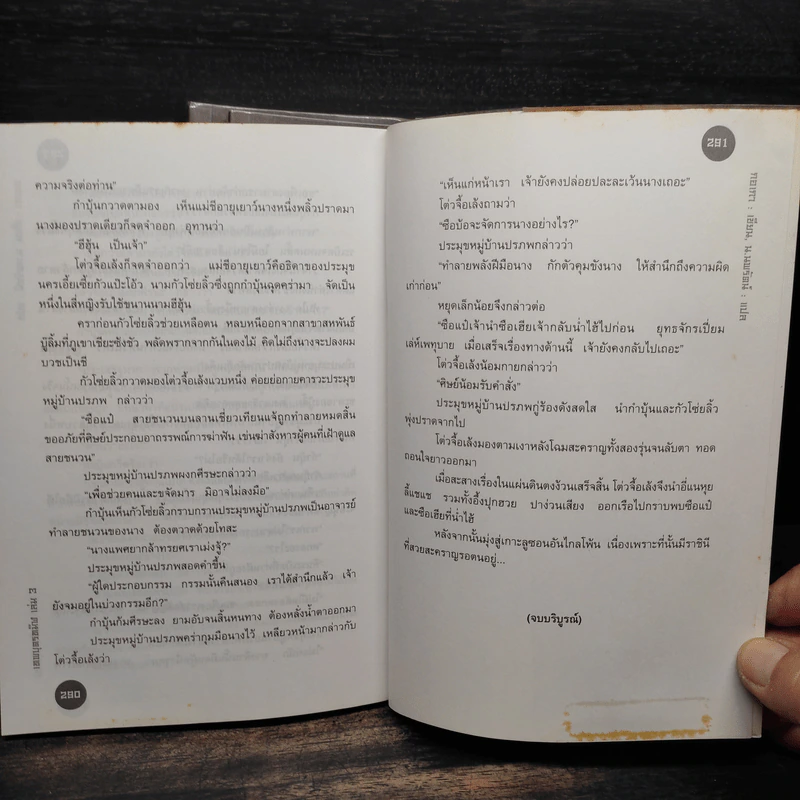 ความจริงต่อท่าน"
กำบุ้นกวาดตามอง เห็นแม่ชีอายุเยาว์นางหนึ่งพลิ้วปราดมา
นางมองปราดเดียวก็จดจำออก อุทานว่า
"ฮีฮุ้น เป็นเจ้า"
โต่วจื้อเล้งก็จดจำออกว่า แม่ชีอายุเยาว์คือธิดาของประมุข
นครเอี้ยเซี้ยกัวแป๊ะโอ้ว นามกัวโซ่ยลิ้วซึ่งถูกกำบุ้นฉุดคร่ามา จัดเป็น
หนึ่งในสี่หญิงรับใช้ขนานนามฮีฮุ้น
คราก่อนกัวโซ่ยลิ้วช่วยเหลือตน หลบหนีออกจากสาขาสหพันธ์
บู๊ลิ้มที่ภูเขาเชียะซังซัว พลัดพรากจากกันในดงไม้ คิดไม่ถึงนางจะปลงผม
บวชเป็นชี
กัวโซ่ยลิ้วกวาดตามองโต่วจื้อเล้งแวบหนึ่ง ค่อยย่อกายคารวะประมุข
หมู่บ้านปรภพ กล่าวว่า
"ซือแป๋ สายชนวนบนลานเซี่ยวเทียนแจ้ถูกทำลายหมดสิ้น
ขออภัยที่ศิษย์ประกอบอาถรรพณ์การฆ่าฟัน เข่นฆ่าสังหารผู้คนที่เฝ้าดูแล
สายชนวน"
ประมุขหมู่บ้านปรภพผงกศีรษะกล่าวว่า
"เพื่อช่วยคนและขจัดมาร มิอาจไม่ลงมือ"
กำบุ้นเห็นกัวโซ่ยลิ้วกราบกรานประมุขหมู่บ้านปรภพเป็นอาจารย์
ทำลายชนวนของนาง ต้องตวาดด้วยโทสะ
"นางแพศยากล้าทรยศเราเม่งจู้?"
ประมุขหมู่บ้านปรภพสอดคำขึ้น
"ผู้ใดประกอบกรรม กรรมนั้นคืนสนอง เราได้สำนึกแล้ว เจ้า
ยังจมอยู่ในบ่วงกรรมอีก?"
กำบุ้นก้มศีรษะลง ยามอับจนสิ้นหนทาง ต้องหลั่งน้ำตาออกมา
ประมุขหมู่บ้านปรภพคร่ากุมมือนางไว้ เหลียวหน้ามากล่าวกับ
โต่วจื้อเล้งว่า
290
291
"เห็นแก่หน้าเรา เจ้ายังคงปล่อยปละละเว้นนางเถอะ"
โต่วจื้อเล้งถามว่า
"ซือบ้อจะจัดการนางอย่างไร?"
ประมุขหมู่บ้านปรภพกล่าวว่า
"ทำลายพลังฝีมือนาง กักตัวคุมขังนาง ให้สำนึกถึงความผิด
เก่าก่อน"
หยุดเล็กน้อยจึงกล่าวต่อ
"ซือแป๋เจ้านำซือเฮียเจ้ากลับน่ำไฮ้ไปก่อน ยุทธจักรเปี่ยม
เล่ห์เพทุบาย เมื่อเสร็จเรื่องทางด้านนี้ เจ้ายังคงกลับไปเถอะ"
โต่วจื้อเล้งน้อมกายกล่าวว่า
"ศิษย์น้อมรับคำสั่ง"
ประมุขหมู่บ้านปรภพกู่ร้องดังสดใส นำกำบุ้นและกัวโซ่ยลิ้ว
พุ่งปราดจากไป
โต่วจื้อเล้งมองตามเงาหลังโฉมสะคราญทั้งสองรุ่นจนลับตา ทอด
ถอนใจยาวออกมา
เมื่อสะสางเรื่องในแผ่นดินตงง้วนเสร็จสิ้น โต่วจื้อเล้งจึงนำอี่แนหุย
ลี้แชแซ รวมทั้งอึ้งปุกฮวย ปาง่วนเสียง ออกเรือไปกราบพบซือแป๋
และซือเฮียที่น่ำไฮ้
หลังจากนั้นมุ่งสู่เกาะลูซอนอันไกลโพ้น เนื่องเพราะที่นั้นมีราชินี
ที่สวยสะคราญรอตนอยู่...
(จบบริบูรณ์)